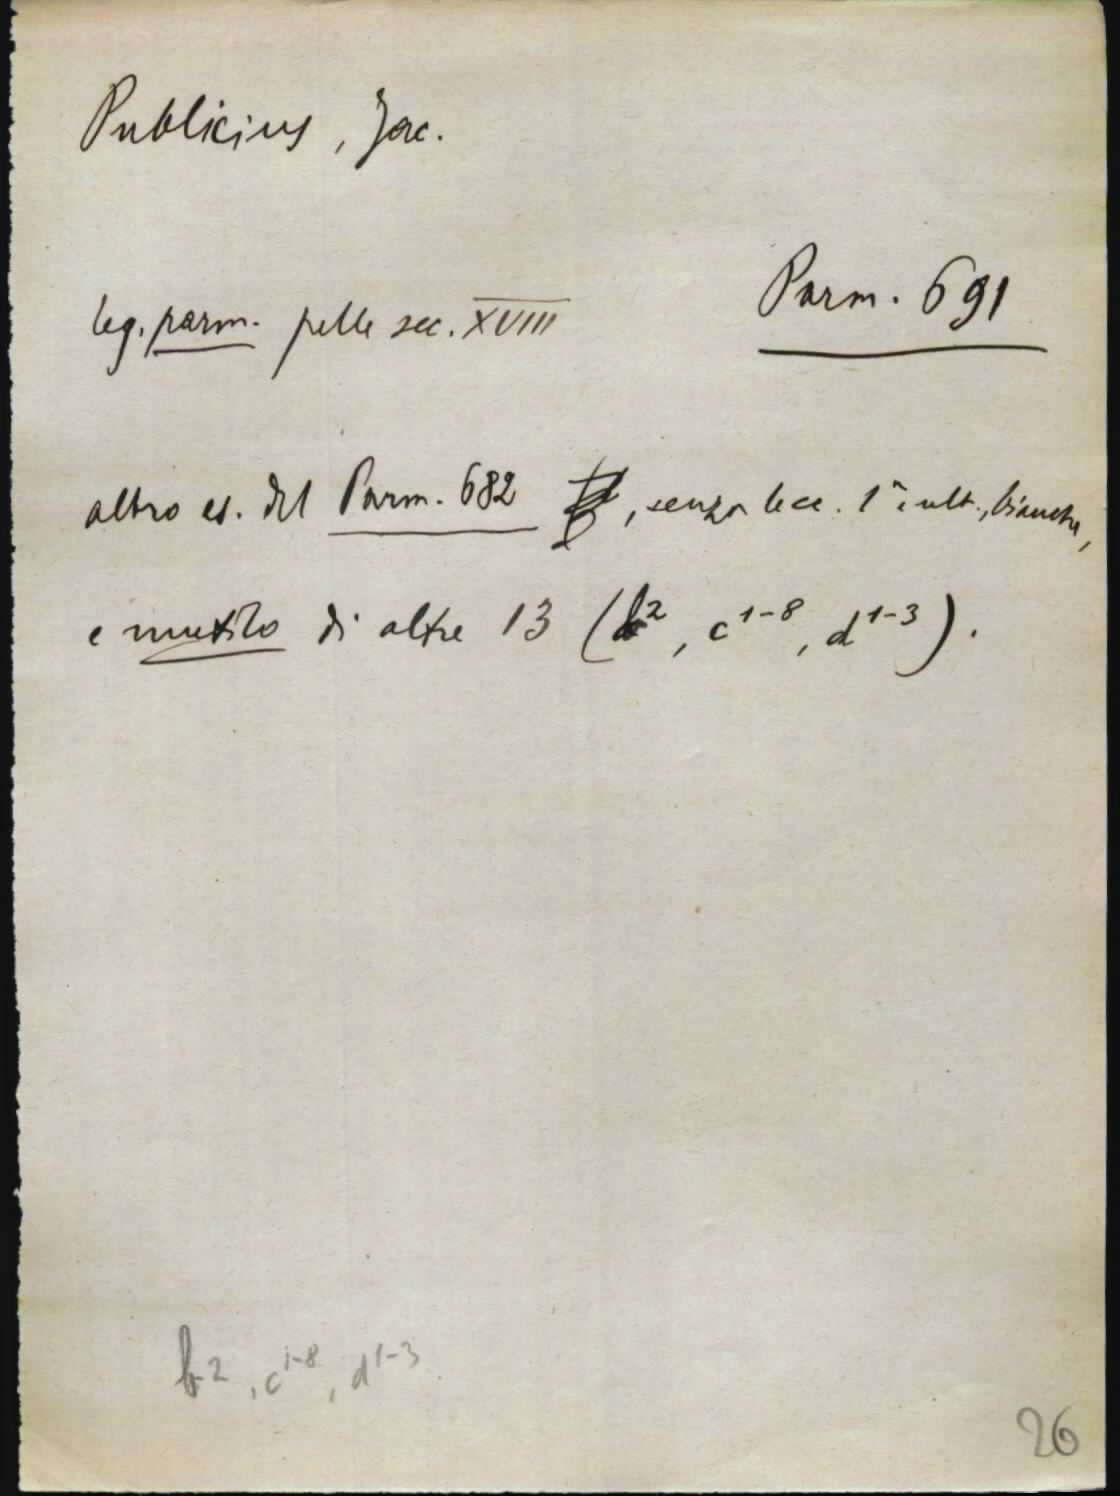 Publicius, Jac.
Parm. 691
leg. parm. pelle sec. XVIII
altro es. del Parm. 682 , senza le cc. 1ª e ult., bianche,
e mutilo di altre 13 (b2, c1-8, d1-3).
b2, c1-8, d1-3
26